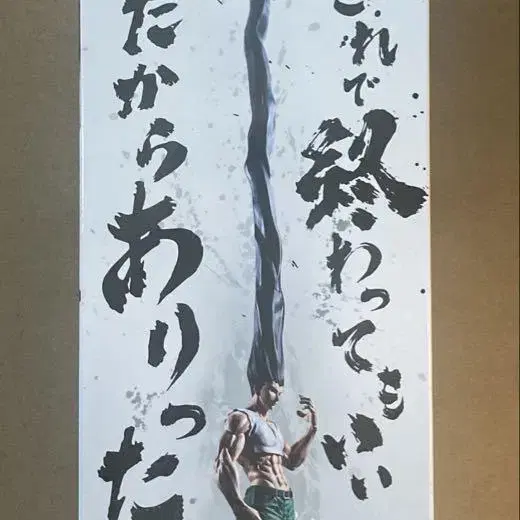 これで終わってもいい
だからありった